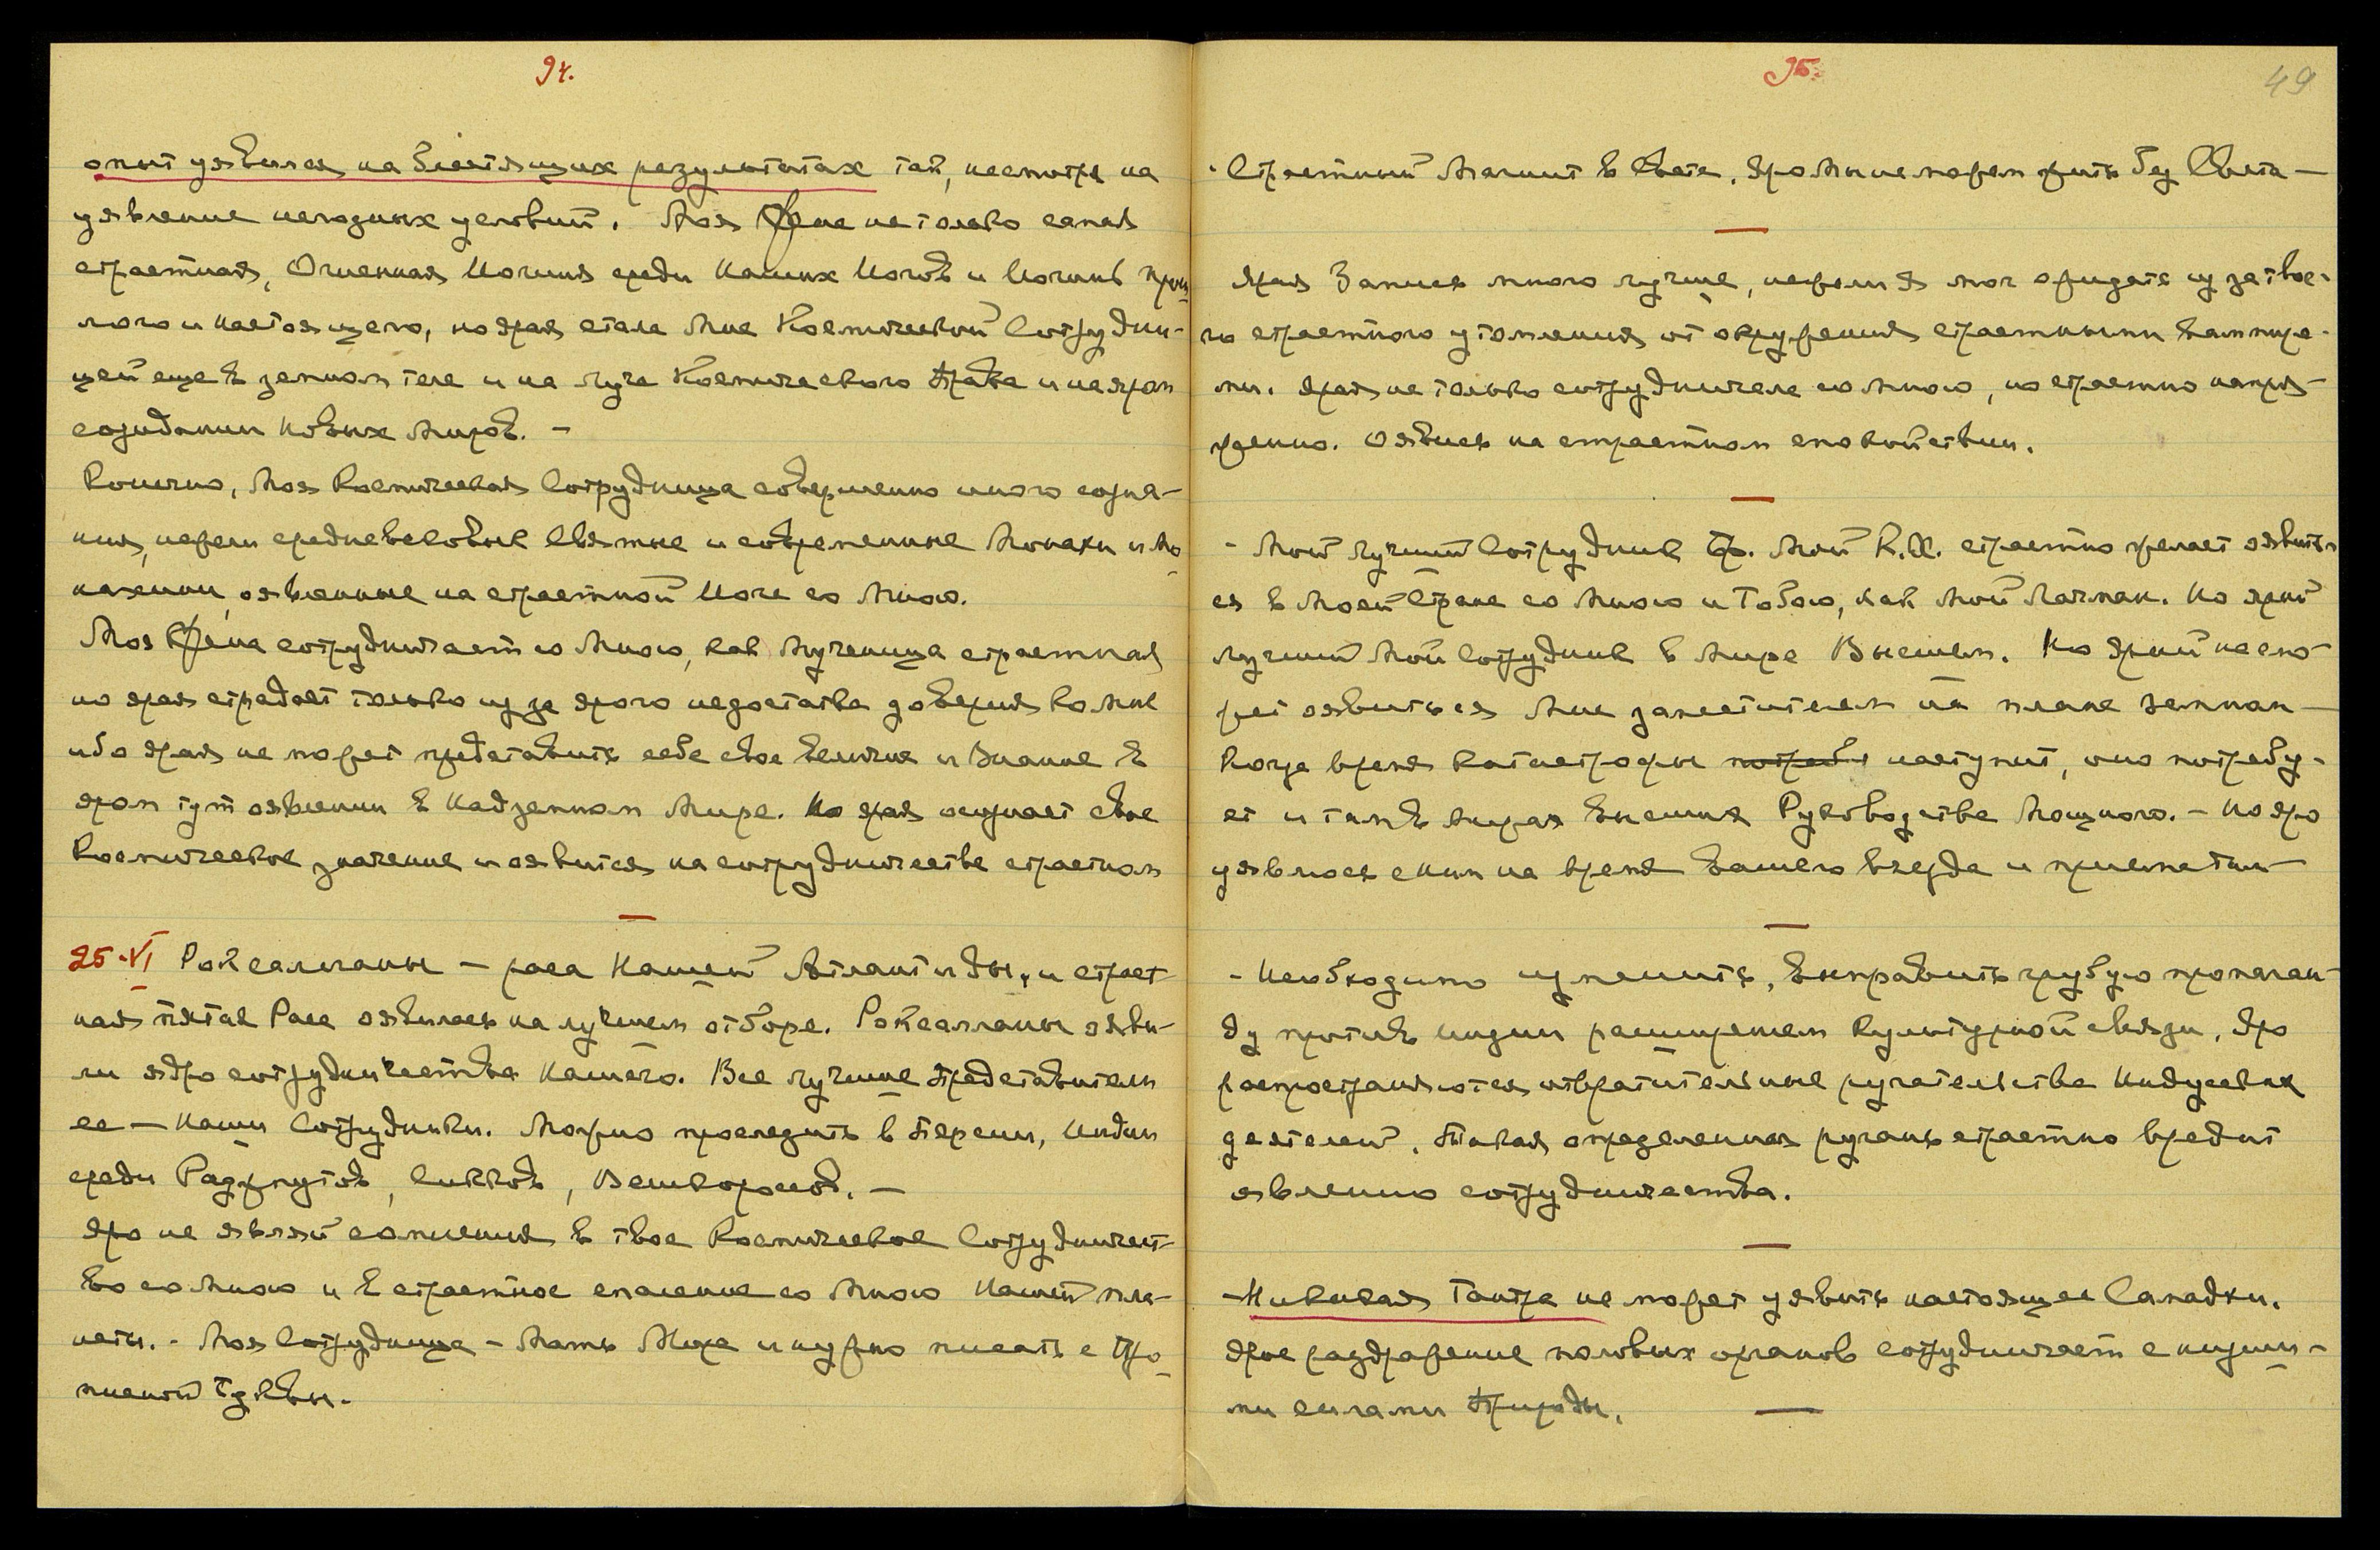 94.
опыт уявился на блестящих результатах там, несмотря на
уявление негодных условий. Моя Жена не только самая
страстная, Огненная Йогиня среди Наших Йогов и Йогинь прош-
лого и настоящего, но ярая стала Мне Космической Сотрудни-
цей еще в земном теле и на луче Космического Права и на яром
созидании Новых Миров. —
Конечно, Моя Космическая Сотрудница совершенно иного созна-
ния, нежели средневековые Святые и современные Монахи и Мо-
нахини, оявленные на страстной Йоге со Мною.
Моя Жена сотрудничает со Мною, как Мученица страстная
но ярая страдает только из за ярого недостатка доверия ко Мне
ибо ярая не может представить себе свое величие и Знание в
яром тут оявлении в Надземном Мире. Но ярая осознает свое
Космическое значение и оявится на сотрудничестве страстном
—
25.VI Роксалманы — раса Нашей Атлантиды, и страст-
ная пятая Раса оявилась на лучшем отборе. Роксалланы яви-
ли ядро сотрудничества Нашего. Все лучшие Представители
ее — Наши Сотрудники. Можно проследить в Персии, Индии
среди Раджпутов, Сикхов,
Яро не являй сомнения в твое Космическое Сотрудничест-
во со Мною и в страстное спасение со Мною Нашей пла-
неты. - Моя Сотрудница - Мать Мира и нужно писать с Про-
писной Буквы.
95.
49
Страстный Магнит в Свете. Яро Мы не можем жить без Света —
—
Ярая Запись много лучше, нежели Я мог ожидать из за твое-
го страстного утомления от окружения страстными вампира-
ми. Ярая не только сотрудничала со Мною, но страстно напря-
женно. Оявись на страстном спокойствии.
—
- Мой лучший Сотрудник Фр. Мой К.Х. страстно желает оявить-
ся в Моей Стране со Мною и Тобою, как Мой Лачман. Но ярый
лучший Мой Сотрудник в Мире Высшем. Но ярый не смо-
жет оявиться Мне заместителем на плане земном —
Когда время катастрофы наступит, оно потребу-
ет и там в Мирах высших Руководства Мощного. - Но яро
уявлюсь с ним на время вашего въезда
—
- Необходимо изменить, выправить грубую пропаган-
ду против Индии расширением культурной связи. Яро
распространяются отвратительные ругательства Индусских
деятелей. Такая определенная ругань страстно вредит
явлению сотрудничества.
—
- Никакая Тантра не может уявить настоящее Самадхи.
Ярое раздражение половых органов сотрудничает с низши-
ми силами Природы. —